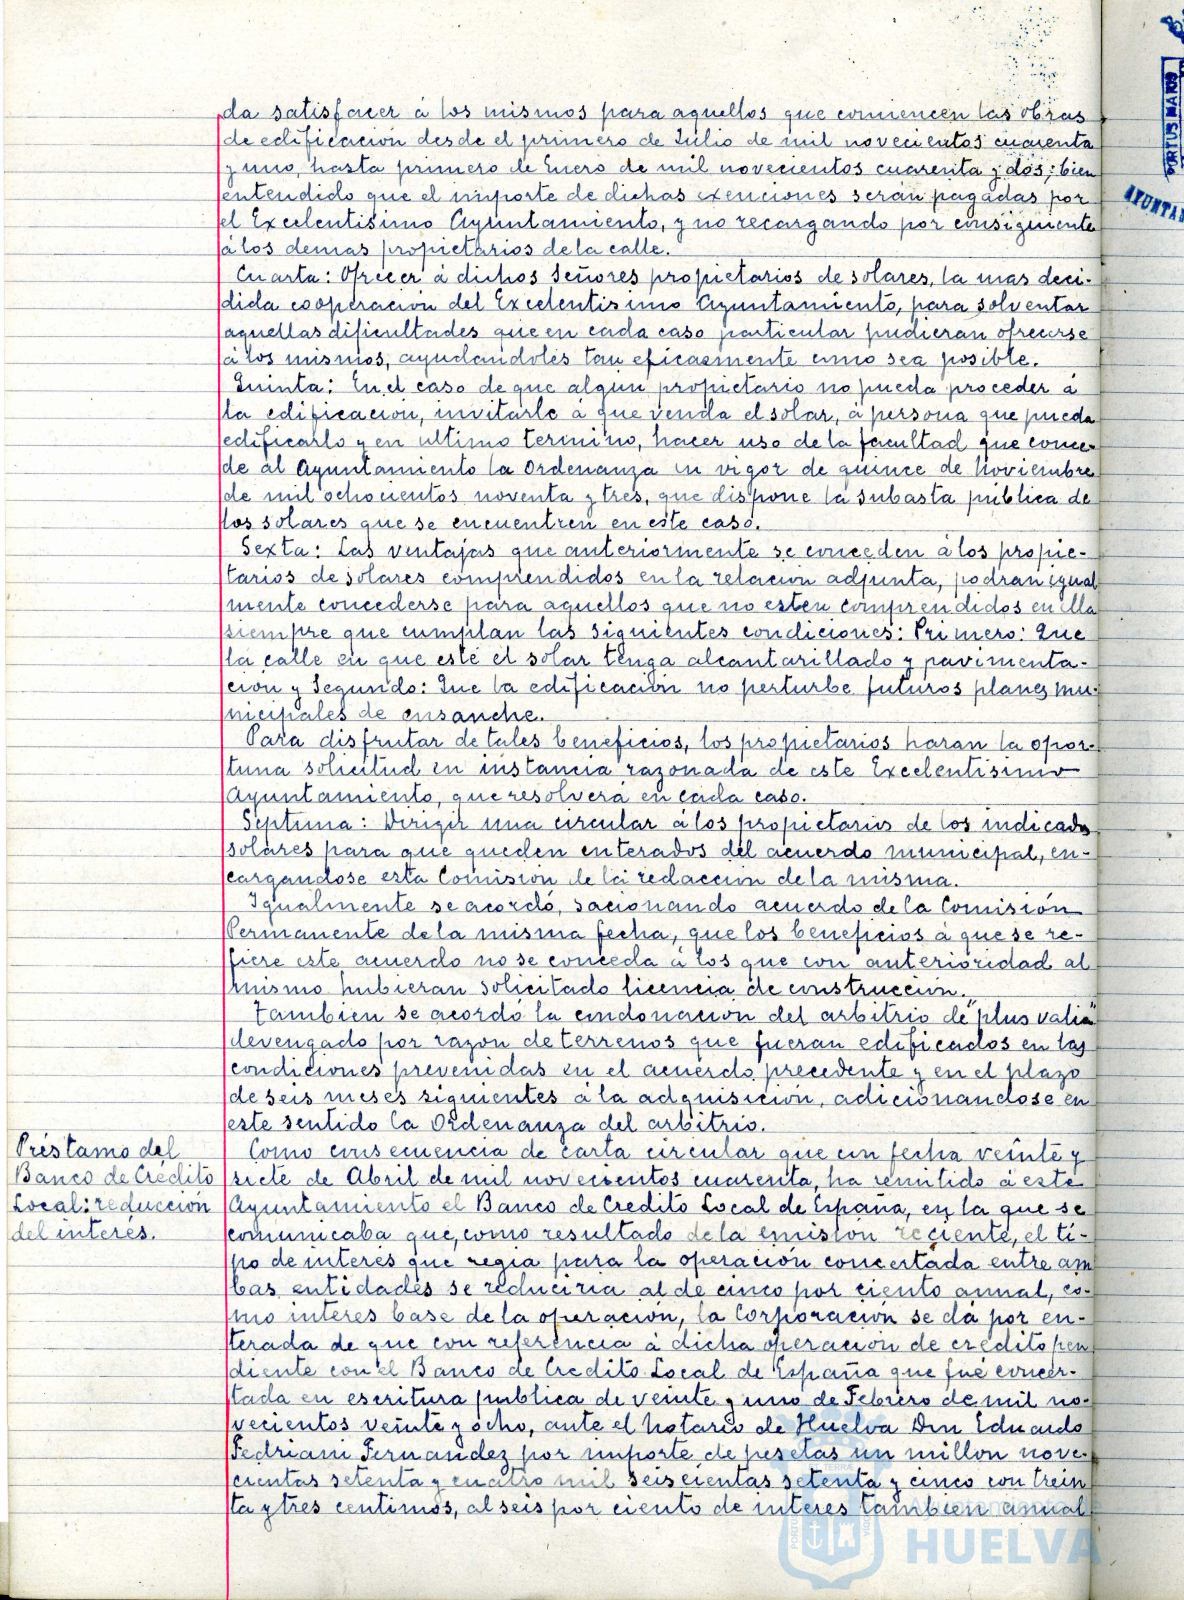 da satisfacer á los mismos para aquellos que comiencen las obras
de edificación desde el primero de Julio de mil novecientos cuarenta
y uno, hasta primero de Enero de mil novecientos cuarenta y dos; bien
entendido que el importe de dichas exenciones serán pagadas por
el Excelentisimo Ayuntamiento, y no recargando por consiguiente
á los demas propietarios de la calle.
Cuarta: Ofrecer á dichos Señores propietarios de solares, la mas deci-
dida cooperación del Excelentisimo Ayuntamiento, para solventar
aquellas dificultades que en cada caso particular pudieran ofrecerse
á los mismos, ayudandoles tan eficasmente como sea posible.
Quinta: En el caso de que algun propietario no pueda proceder á
la edificación, invitarle á que venda el solar, á persona que pueda
edificarlo y en ultimo termino, hacer uso de la facultad que conce-
de al Ayuntamiento la Ordenanza en vigor de quince de Noviembre
de mil ochocientos noventa y tres, que dispone la subasta pública de
los solares que se encuentren en este caso.
Sexta: Las ventajas que anteriormente se conceden á los propie-
tarios de solares comprendidos en la relación adjunta, podran igual
mente concederse para aquellos que no esten comprendidos en ella
siempre que cumplan las siguientes condiciones: Primero: Que
la calle en que esté el solar tenga alcantarillado y pavimenta-
ción y Segundo: Que la edificación no perturbe futuros planes mu-
nicipales de ensanche.
Para disfrutar de tales beneficios, los propietarios haran la opor-
tuna solicitud en instancia razonada de este Excelentisimo
Ayuntamiento, que resolverá en cada caso.
Septima: Dirigir una circular á los propietarios de los indicados
solares para que queden enterados del acuerdo municipal, en-
cargandose esta Comisión de la redacción de la misma.
Igualmente se acordó, sacionando acuerdo de la Comisión
Permanente de la misma fecha, que los beneficios á que se re-
fiere este acuerdo no se conceda á los que con anterioridad al
mismo hubieran solicitado licencia de construccion.
Tambien se acordó la condonación del arbitrio de "plus valia"
devengado por razon de terrenos que fueran edificados en las
condiciones prevenidas en el acuerdo precedente y en el plazo
de seis meses siguientes á la adquisición, adicionandose en
este sentido la Ordenanza del arbitrio.
Préstamo del
Banco de Crédito
Local: reducción
del interés.
Como consecuencia de carta circular que con fecha veinte y
siete de Abril de mil novecientos cuarenta, ha remitido á este
Ayuntamiento el Banco de Credito Local de España, en la que se
comunicaba que, como resultado de la emisión reciente, el ti-
po de interés que regia para la operación concertada entre am
bas entidades se reduciria al de cinco por ciento annual, co-
mo interes base de la operación, la Corporación se dá por en-
terada de que con referencia á dicha operación de credito pen
diente con el Banco de Credito Local de España que fué concer-
tada en escritura publica de veinte y uno de Febrero de mil no-
vecientos veinte y ocho, ante el Notario de Huelva Don Eduardo
Fedriani Fernandez por importe de pesetas un millon nove-
cientas setenta y cuatro mil seiscientas setenta y cinco con trein
ta y tres centimos, al seis por ciento de interes tambien anual
PORTUS MARIS
AYUNTA
HUELVA